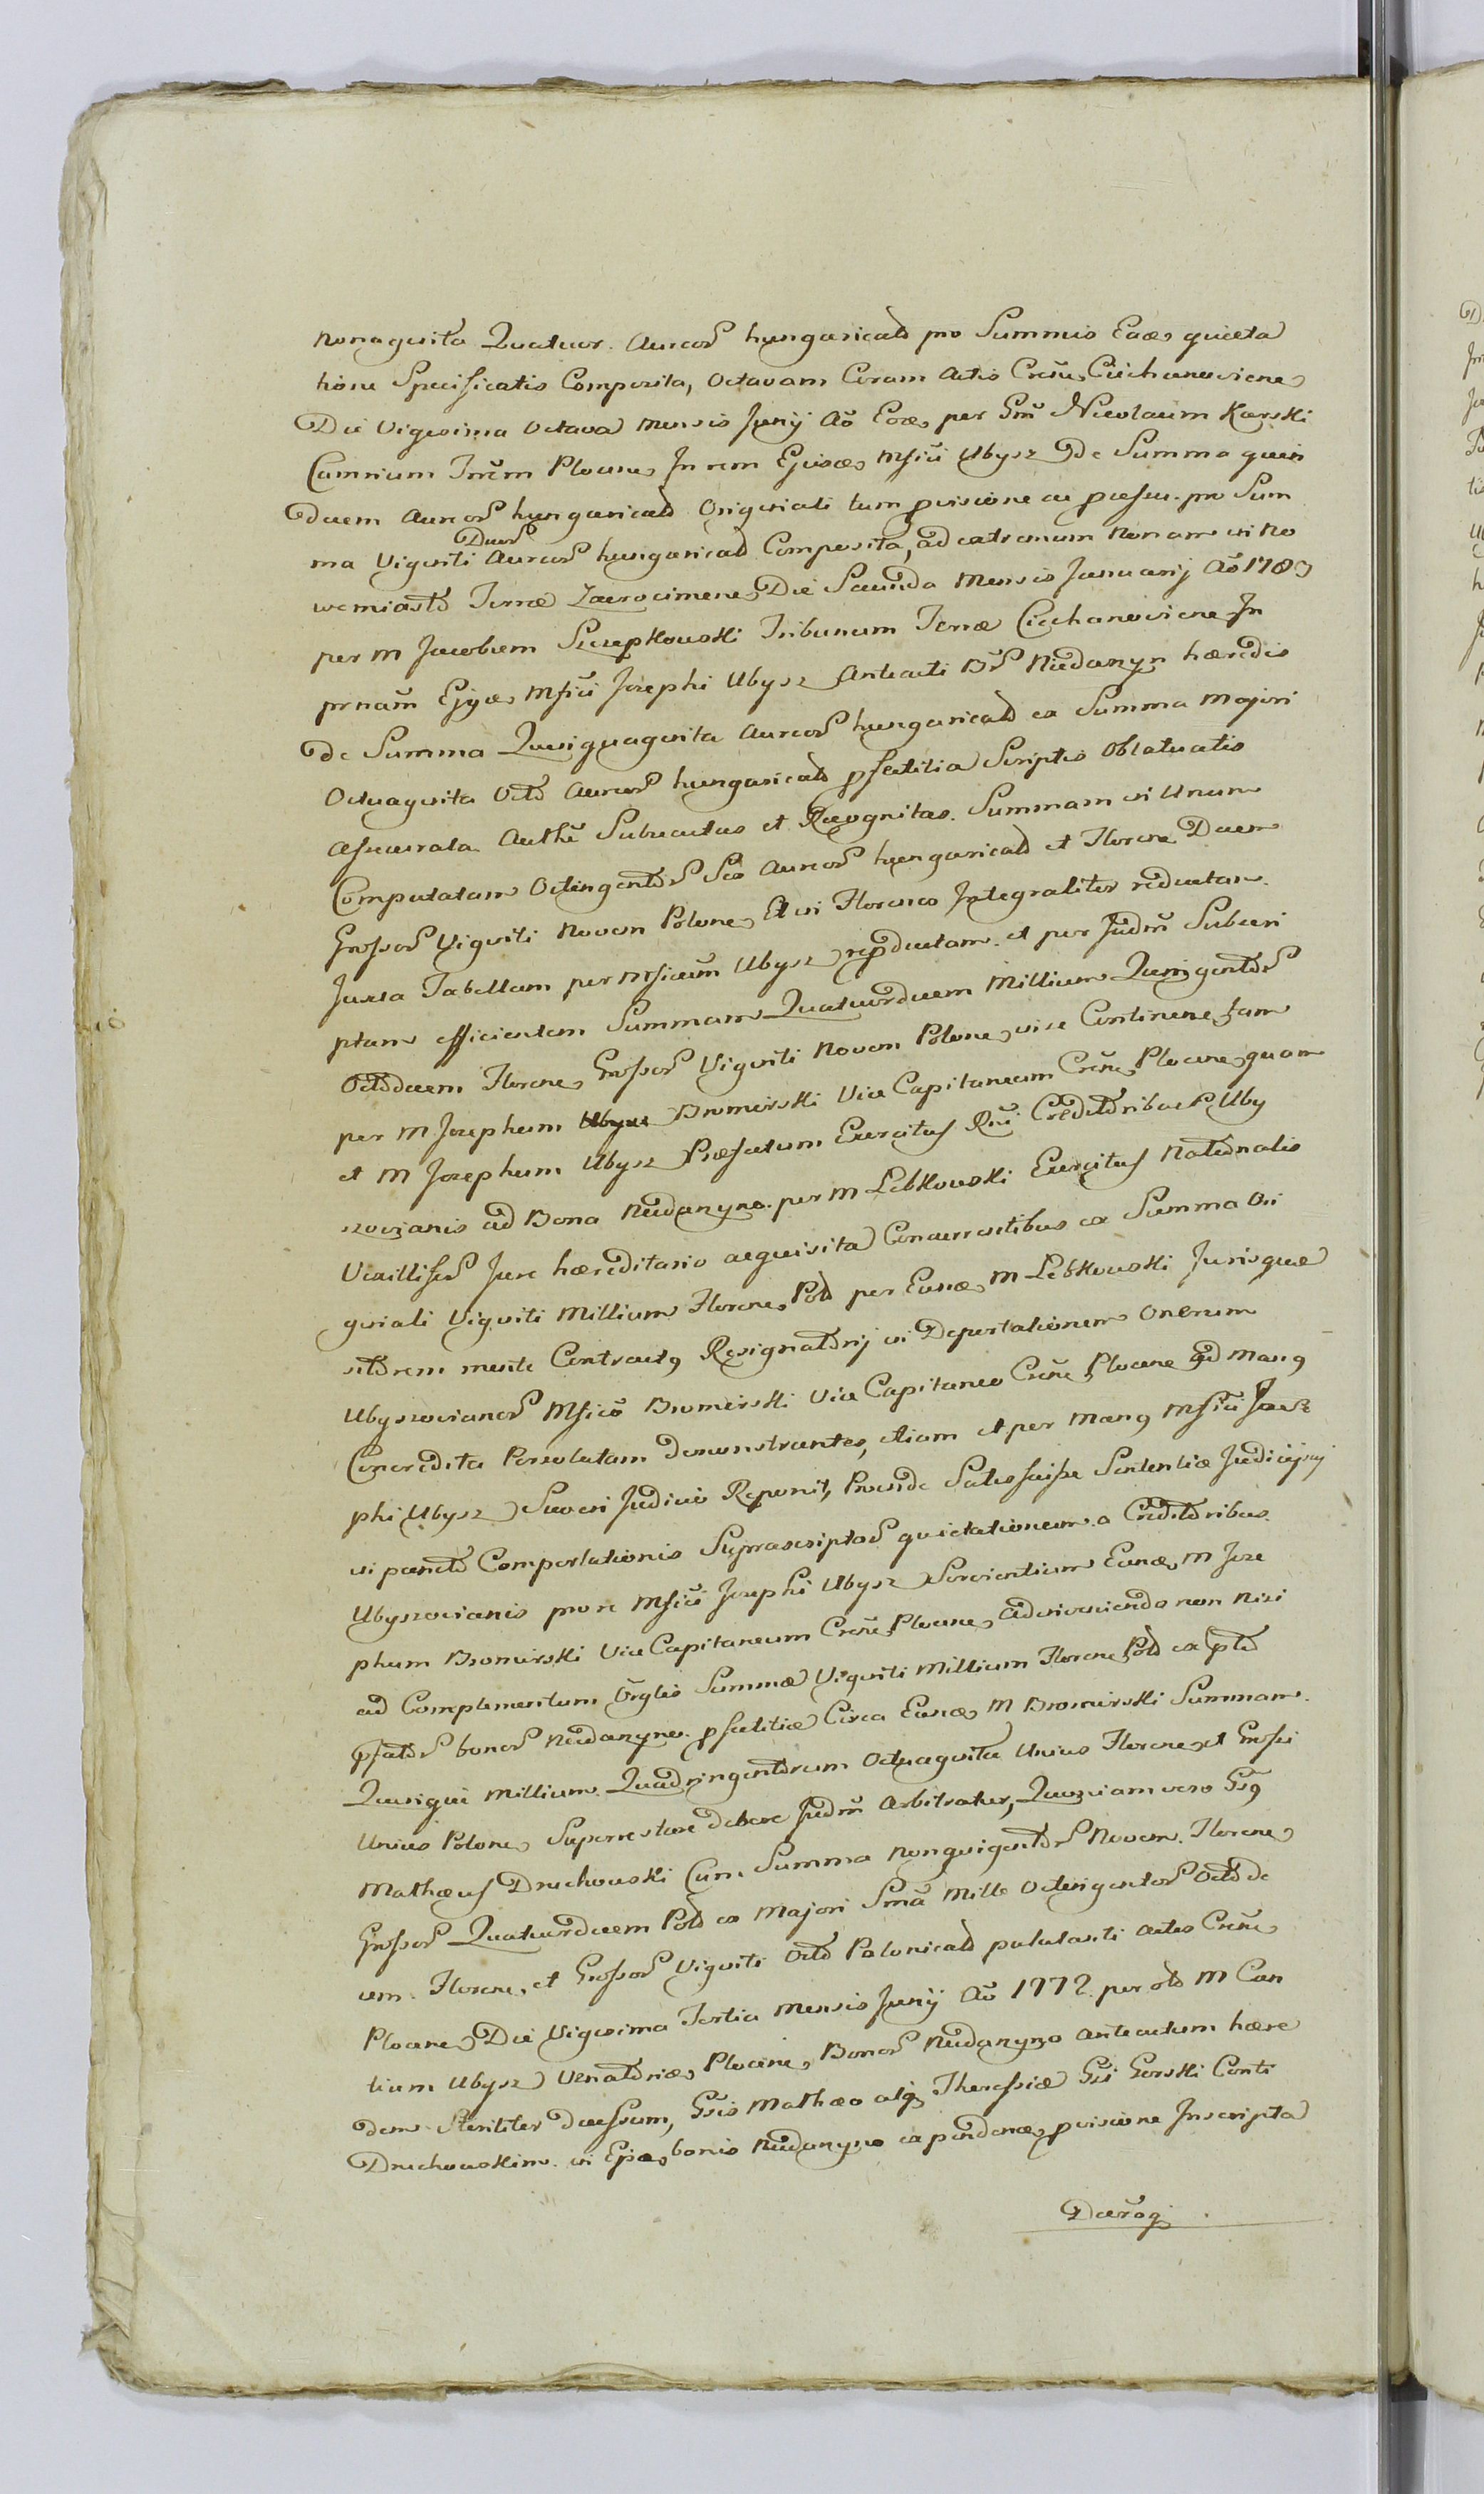 nonaginta Quatuor. Aureor hungaricald pro Summis Eade, quieta
tione Specificatis Comporita, Octavam Coram Actis Crens, Ciechanoviens
Die Vigesima Octava mensis Junij Aō Eode, per Gm̃ Nicolaum Karski
Camrium Trrem Plocens, In rem Ejusde, Mfici Ubysz De Summa quin
decem Aureor hungaricald Originali tum provisione ac praesen. pro Sum
ma Viginti Duor Aureor hungaricald Composita, ad extremum Nonam in No
wemiasto Terrae Zacrocimens, Die Secunda Mensis Januarij Aō 1783
per M Jacobum Szczepkowski Tribunum Terrae Ciechanoviens In
prnam̃ Ejusde, Mfici Josephi Ubysz Anteacti Br Niedarzyn haeredis
de Summa Quinquaginta Aureor hungaricald ex Summa Majori
Octuaginta Octo Aureor hungaricald pfatitia Scriptis Oblatuatis
assecurata Authe Subsecutas et Recognitas. Summam in Unum
Computatam Octingentor Sex Aureor hungaricald et Florens Duem
Grossor Viginti Novem Polone, Et in Florenos Integraliter reductam.
Juxta Tabellam per Mficum Ubysz reproductam. et per Judm̃ Subscri
ptam efficientem Summam Quatuordecem Millium Quingentor
Octodecem Florens, Grossor Viginti Novem Polone, in se Continens, tam
per M Josephum Ubysz Bromirski Vice Capitaneum Crens, Plocens, quam
et M Josephum Ubysz Praefatum Exercitus Rni Creditoribus Uby
szovianis ad Bona Niedarzyno. per M Lebkowski Exercitus Nationalis
Vexilliferr Jure haereditario acquisita Concurrentibus ex Summa Ori
ginali Viginti Millium Florens, Pold per Eunde, M Lebkowski Jurisque
sitorem mente Contractus Resignatorij in Deportationem Onerum
Ubyszovianor Mfico Bromirski Vice Capitaneo Crens Plocens ad Manus
Concredita Persolutam demonstrantes, etiam et per Manus Mfici Jose
phi Ubysz Suo in Judicio Reponit, Proinde Satisfecisse Sententiae Judicij sui
in puncto Comportationis Suprascriptor quietationum a Creditoribus.
Ubyszovianis pro re Mfici Josephi Ubysz Servientium Eunde, M Jose
phum Bromirski Vice Capitaneum Crens, Plocens, adinveniendo non nisi
ad Complementum Orglis Summae Viginti Millium Florens Pold ex ptio
pfator bonor Niedarzyno. pfatitiae Circa Eunde, M Bromirski Summam.
Quinque Millium. Quadringentorum Octuaginta Unius Florens, et Grossi
Unius Polone, Superrestare debere Judm̃ Arbitratur, Quoniam vero Gs9
Mathaeus Druchowski Cum Summa Nongvigentor Novem. Florens
Grossor Quatuordecem Pold ex Majori Sm̃a Mille Octingentor Octode
cem. Florens, et Grossor Viginti Octo Polonicald patulanti actis Crens,
Plocens, Die Vigesima Tertia Mensis Junij Aō 1772 per olo M Can
tium Ubysz Venatorid, Plocens, Bonor Niedarzyno anteactum haere
dem Steriliter decessum, Gsis Mathaeo atq, Theressiae Gsi Gorski Conti
Druchowskim. in Ejsde, bonis Niedarzyno ex pendende, provisione Inscripta
Duarog